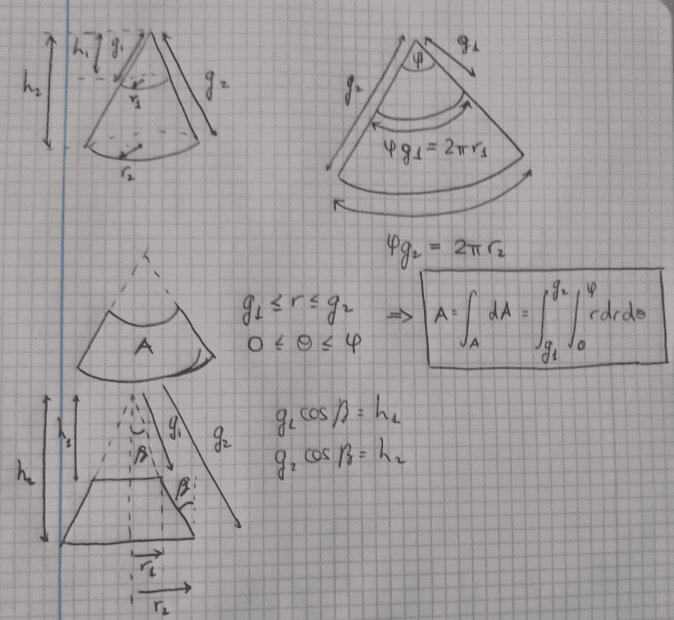 h₁ g₁
h₂ g₂
r₁
r₂
g₁
φ
g₂
φg₁ = 2πr₁
φg₂ = 2πr₂
A
g₁ ≤ r ≤ g₂
0 ≤ θ ≤ φ
⇒ A = ∫_A dA = ∫_{g₁}^{g₂} ∫_0^φ r dr dθ
h₁ g₁ g₂
h₂ β β
g₁ cos β = h₁
g₂ cos β = h₂
r₁
r₂